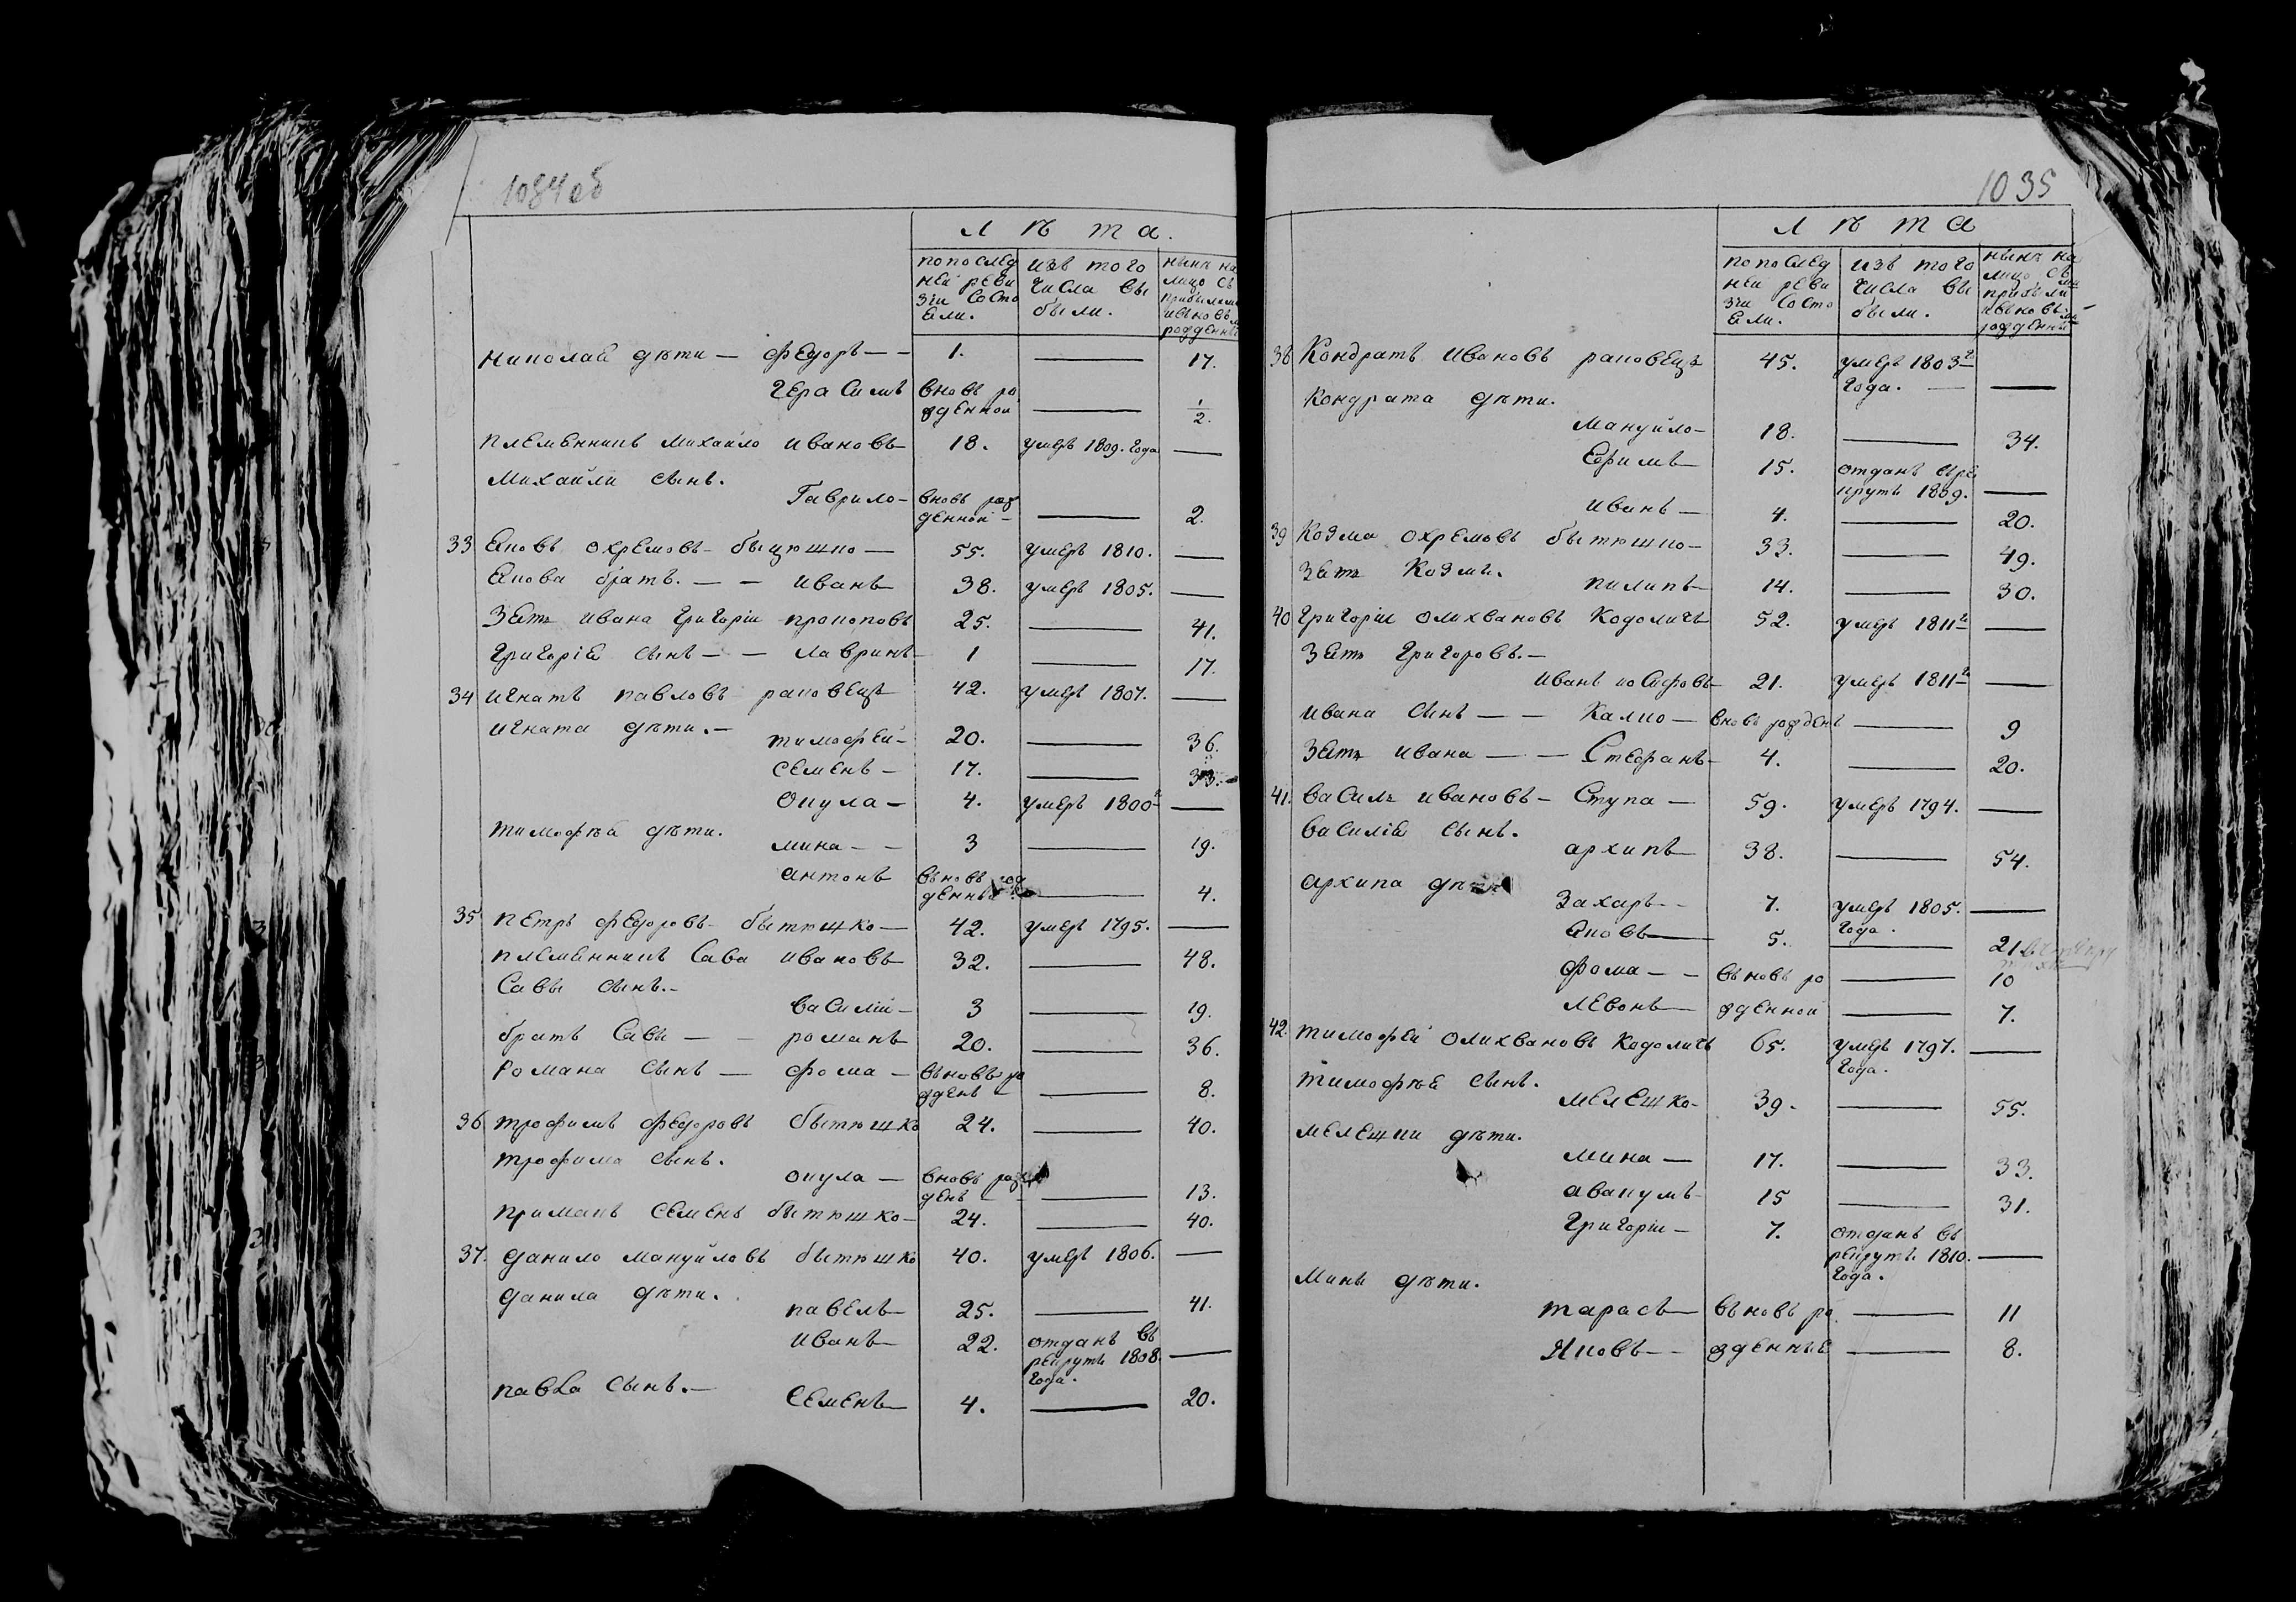 1084 об
Лѣта.
попослед изъ того нынѣ на
ней реви числа вы лицо съ
зіи состо были. прибылими
яли. ивновь
рожденны
николая дѣти — федоръ — — 1. — 17.
герасимъ вновь ро
жденной — 1/2.
племенникъ михайло ивановъ — 18. умеръ 1809. года —
михайли сынъ.
Гаврило — вновь рож
денной — — 2.
33 яковъ охремовъ — бытюшко — 55. умеръ 1810. —
якова братъ. — — иванъ — 38. умеръ 1805. —
Зять ивана григорій прокоповъ 25. — 41.
григорія сынъ — — лавринъ — 1 — 17.
34 игнатъ павловъ раковецъ 42. умеръ 1807. —
игната дѣти. —
тимофей — 20. — 36.
семенъ — 17. — 33. —
окула — 4. умеръ 1800 г —
тимофѣя дѣти.
мина — — 3 — 19.
антонъ вьновь рож
денные — 4.
35 петръ федоровъ — бытюшко — 42. умеръ 1795. —
племянникъ Сава ивановъ 32. — 48.
Савы сынъ. —
василій — 3 — 19.
братъ Савы — — романъ 20. — 36.
Романа сынъ — фома — вьновь ро
жденъ — — 8.
36 трофимъ федоровъ бытюшко 24. — 40.
трофима сынъ.
окула — вновь рож
денъ — — 13.
примакъ семенъ бытюшко — 24. — 40.
37. данило мануйловъ бытюшко 40. умеръ 1806. —
данила дѣти.
павелъ — 25. — 41.
иванъ — 22. отданъ въ
рекруты 1808. —
года.
павла сынъ. —
семенъ — 4. — 20.
1035
Лѣта
попослед изъ того нынѣ на
ней реви числа вы лицо съ
зіи состо были. прибыли ми
яли. ивьновь
рожденны
38 Кондратъ ивановъ раковецъ 45. умеръ 1803 г
года. — —
Кондрата дѣти.
мануйло — 18. — 34.
Ефимъ — 15. отданъ въре
круты 1809. —
иванъ — 4. — 20.
39 Козма охремовъ бытюшко — 33. — 49.
зять Козмы.
пилипъ — 14. — 30.
40 григорій олихвановъ Кодоличъ 52. умеръ 1811 г —
зять григоровъ. —
иванъ иосифовъ — 21. умеръ 1811 г —
ивана сынъ — — Калио — вновь рожденъ — 9
зять ивана — — Стефанъ — 4. — 20.
41. василь ивановъ — Ступа — 59. умеръ 1794. —
василія сынъ.
архипъ — 38. — 54.
архипа дѣти
Захаръ — — 7. умеръ 1805. —
года.
яковъ — 5. — 21
фома — — вьновь ро — 10
левонъ — жденной — 7.
42. тимофей олихвановъ Кодоличъ 65. умеръ 1797. —
года.
тимофѣя сынъ.
мелешко — 39. — 55.
мелешки дѣти.
мина — 17. — 33.
авакумъ — 15 — 31.
григорій — 7. отданъ въ
рекруты 1810. —
года.
мины дѣти.
тарасъ — вьновь ро — 11
яковъ — — жденные — 8.